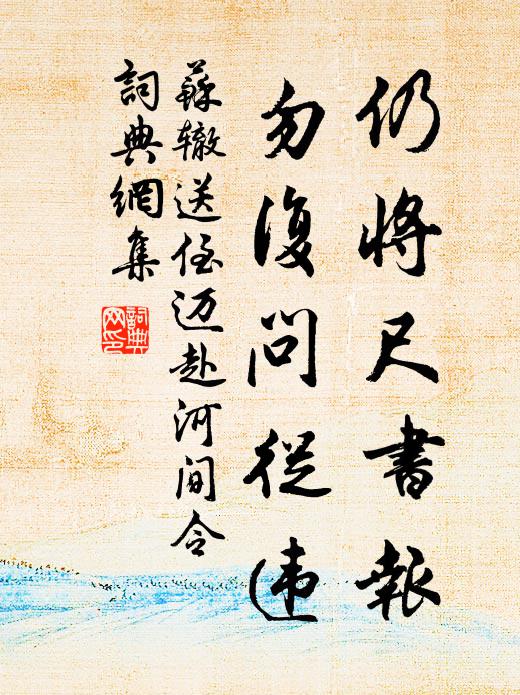 仍将尺書報
勿復問從违
蘇辙送侄迈赴河间令
詞典網集
詞典网印